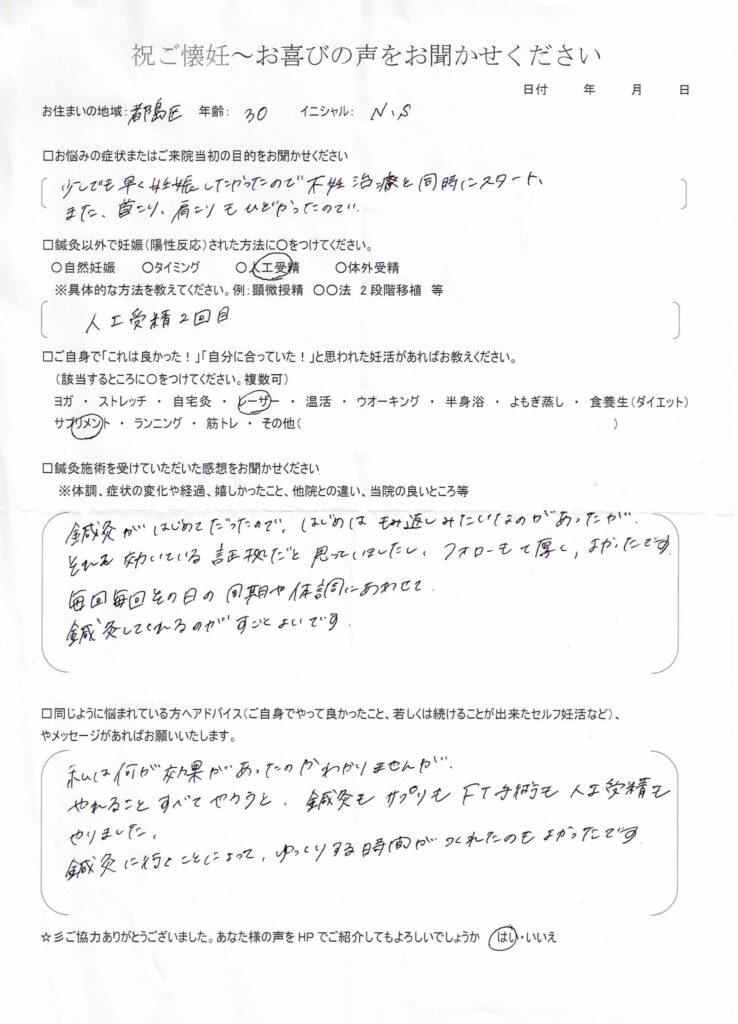 祝ご懐妊～お喜びの声をお聞かせください
日付 年 月 日
お住まいの地域：都島区 年齢： 30 イニシャル： N.S
□お悩みの症状またはご来院当初の目的をお聞かせください
少しでも早く妊娠したかったので不妊治療と同時にスタート、
また、首こり、肩こりもひどかったので。
□鍼灸以外で妊娠（陽性反応）された方法に○をつけてください。
○自然妊娠 ○タイミング ○人工受精 ○体外受精
※具体的な方法を教えてください。例：顕微授精 ○○法 2段階移植 等
人工受精2回目
□ご自身で「これは良かった！」「自分に合っていた！」と思われた妊活があればお教えください。
（該当するところに○をつけてください。複数可）
ヨガ ・ ストレッチ ・ 自宅灸 ・ レーザー ・ 温活 ・ ウオーキング ・ 半身浴 ・ よもぎ蒸し ・ 食養生（ダイエット）
サプリメント ・ ランニング ・ 筋トレ ・ その他（ ）
□鍼灸施術を受けていただいた感想をお聞かせください
※体調、症状の変化や経過、嬉しかったこと、他院との違い、当院の良いところ等
鍼灸がはじめてだったので、はじめはもみ返しみたいなのがあったが、
それも効いている証拠だと思っていましたし、フォローも手厚く、よかったです
毎回毎回その日の周期や体調にあわせて
鍼灸してくれるのがすごくよいです
□同じように悩まれている方へアドバイス（ご自身でやって良かったこと、若しくは続けることが出来たセルフ妊活など）、
やメッセージがあればお願いいたします。
私は何が効果があったのかわかりませんが、
やれることすべてやろうと、鍼灸もサプリもFT手術も人工受精も
やりました。
鍼灸に行くことによって、ゆっくりする時間がつくれたのもよかったです
☆彡ご協力ありがとうございました。あなた様の声をHPでご紹介してもよろしいでしょうか はい・いいえ